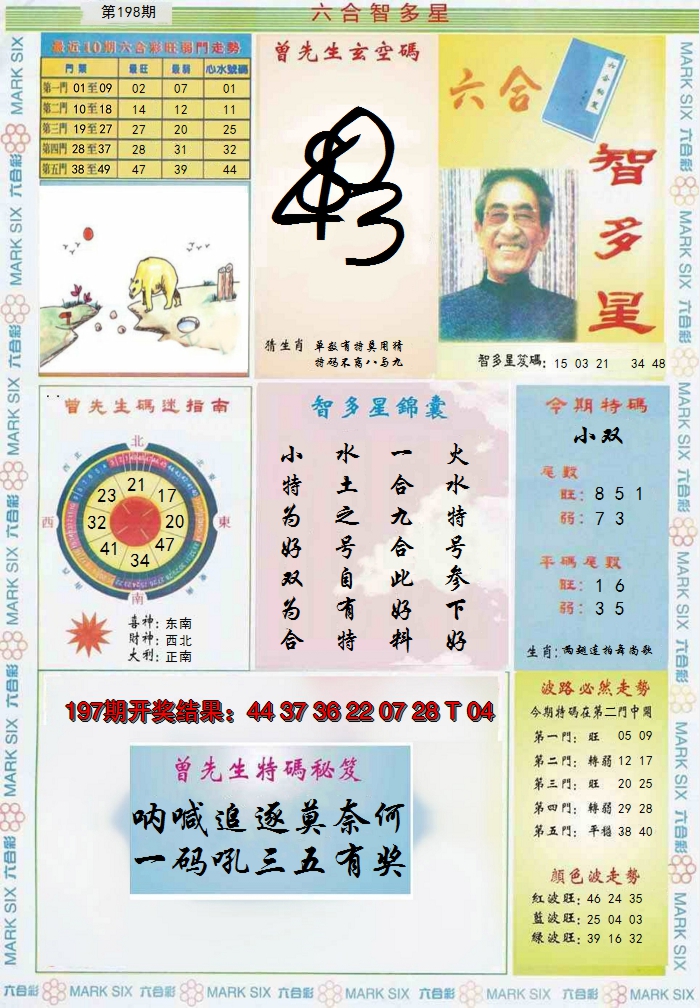 第198期
六合智多星
最近10期六合彩旺弱門走勢
門類 最旺 最弱 心水號碼
第一門 01至09 02 07 01
第二門 10至18 14 12 11
第三門 19至27 27 20 25
第四門 28至37 28 31 32
第五門 38至49 47 39 44
曾先生玄空碼
猜生肖 单数有特莫用猜
特码不离八与九
六合
智多星
智多星笈碼: 15 03 21 34 48
曾先生碼迷指南
北
西
東
南
21
17
20
47
34
41
32
23
喜神: 东南
财神: 西北
大利: 正南
智多星錦囊
火水特号参下好
一合九合此好料
水土之号自有特
小特为好双为合
今期特碼
小双
尾数
旺: 8 5 1
弱: 7 3
平碼尾数
旺: 1 6
弱: 3 5
生肖: 两翅逢拍舞尚歌
197期开奖结果: 44 37 36 22 07 28 T 04
曾先生特碼秘笈
呐喊追逐莫奈何
一码吼三五有奖
波路必然走勢
今期特碼在第二門中開
第一門: 旺 05 09
第二門: 轉弱 12 17
第三門: 旺 20 25
第四門: 轉弱 29 28
第五門: 平穩 38 40
顏色波走勢
紅波旺: 46 24 35
藍波旺: 25 04 03
綠波旺: 39 16 32
MARK SIX 六合彩